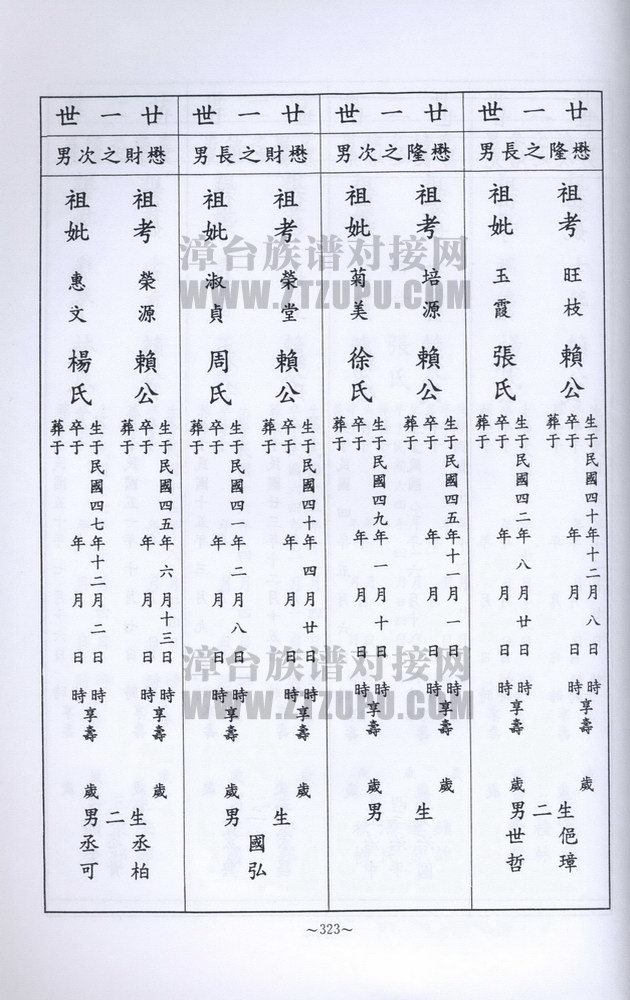 廿一世
懋隆之長男
祖考 旺枝 賴公
生于民國四十年十二月八日 時享壽 歲
卒于 年 月 日 時
葬于
祖妣 玉霞 張氏
生于民國四二年八月廿日 時享壽 歲
卒于 年 月 日 時
葬于
生二男
俋璋
世哲
廿一世
懋隆之次男
祖考 培源 賴公
生于民國四五年十一月一日 時享壽 歲
卒于 年 月 日 時
葬于
祖妣 菊美 徐氏
生于民國四九年一月十日 時享壽 歲
卒于 年 月 日 時
葬于
生 男
廿一世
懋財之長男
祖考 榮堂 賴公
生于民國四十年四月廿日 時享壽 歲
卒于 年 月 日 時
葬于
祖妣 淑貞 周氏
生于民國四一年二月八日 時享壽 歲
卒于 年 月 日 時
葬于
生 男
國弘
廿一世
懋財之次男
祖考 榮源 賴公
生于民國四五年六月十三日 時享壽 歲
卒于 年 月 日 時
葬于
祖妣 惠文 楊氏
生于民國四七年十二月二日 時享壽 歲
卒于 年 月 日 時
葬于
生二男
丞柏
丞可
~323~
漳台族谱对接网
WWW.ZTZUPU.COM
漳台族谱对接网
WWW.ZTZUPU.COM